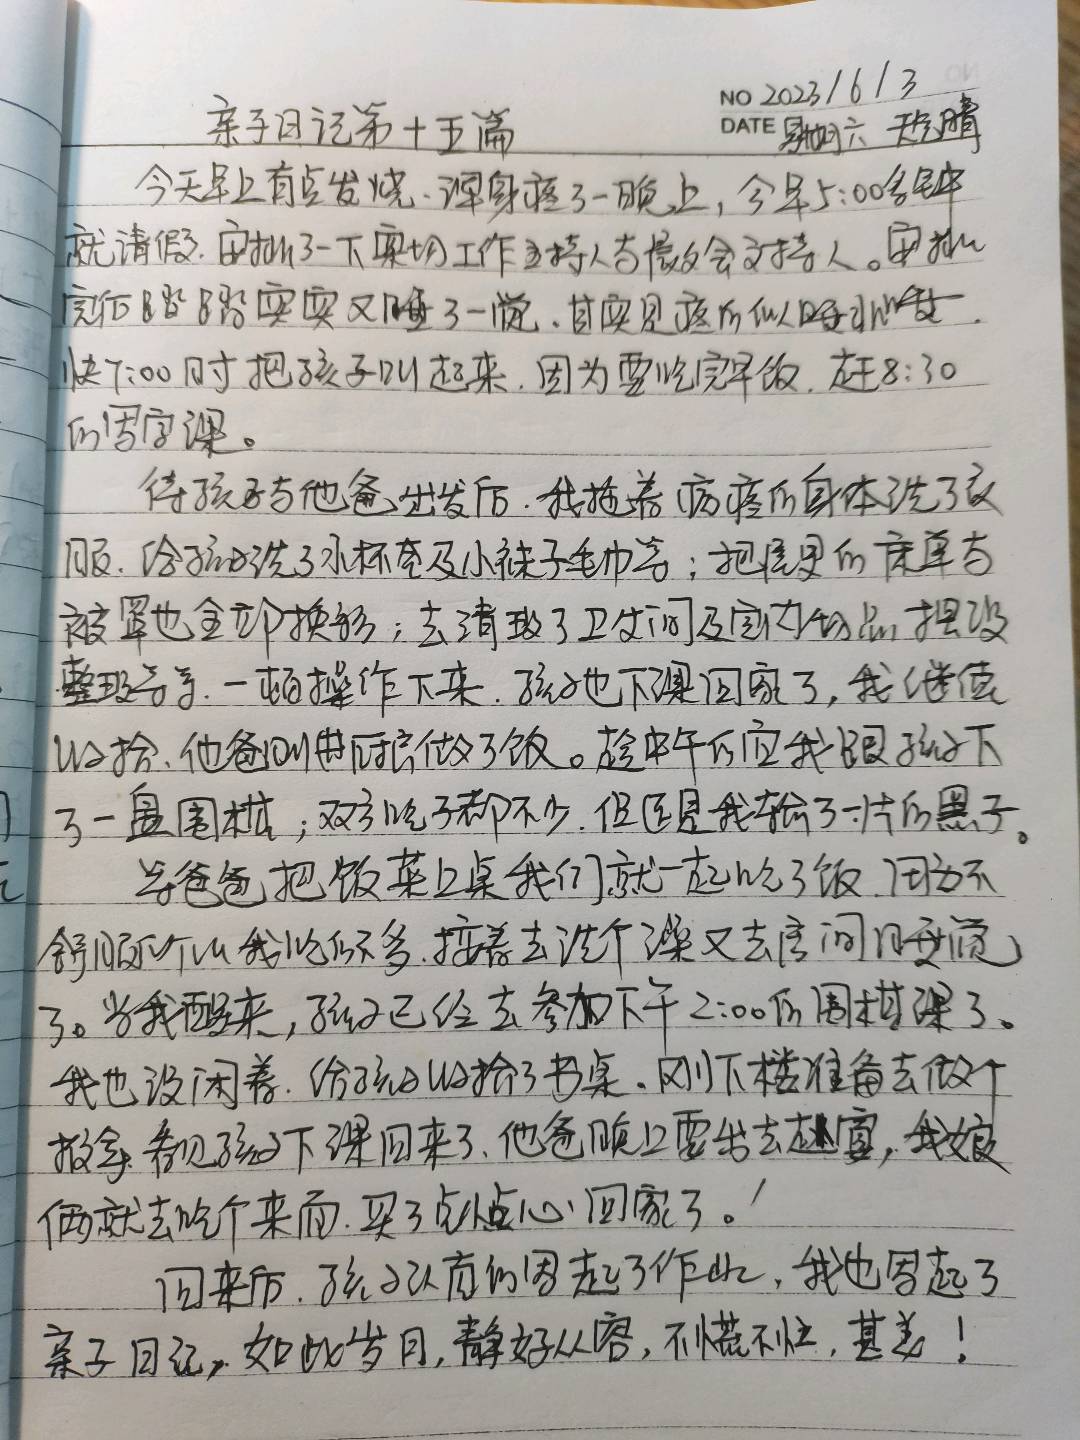 NO 2023/6/3
亲子日记第十五篇
DATE 星期六 天气晴
今天早上有点发烧.浑身疼了一晚上，今早5:00多钟
就请假.审批了一下案场工作主持人与晨会主持人。审批
完后踏踏实实又睡了一觉.其实是疼的似睡非睡.
快7:00时把孩子叫起来.因为要吃完早饭.赶8:30
的写字课。
待孩子与他爸出发后.我拖着病疼的身体洗了衣
服.给孩子洗了水杯壳及小袜子毛巾等；把屋里的床单与
被罩也全部换新；去清理了卫生间及室内物品摆设
整理等等.一顿操作下来.孩子也下课回家了，我继续
收拾.他爸则进厨房做了饭。趁中午的空我跟孩子下
了一盘围棋；双方吃子都不少.但还是我输了一片的黑子。
等爸爸把饭菜上桌我们就一起吃了饭.因为不
舒服所以我吃的不多.接着去洗个澡又去房间睡觉
了。当我醒来，孩子已经去参加下午2:00的围棋课了。
我也没闲着.给孩子收拾了书桌。刚下楼准备去做个
核酸.看见孩子下课回来了.他爸晚上要出去赴宴，我娘
俩就去吃个来面.买了点点心回家了。！
回来后.孩子认真的写起了作业，我也写起了
亲子日记，如此岁月，静好从容，不慌不忙，甚美！